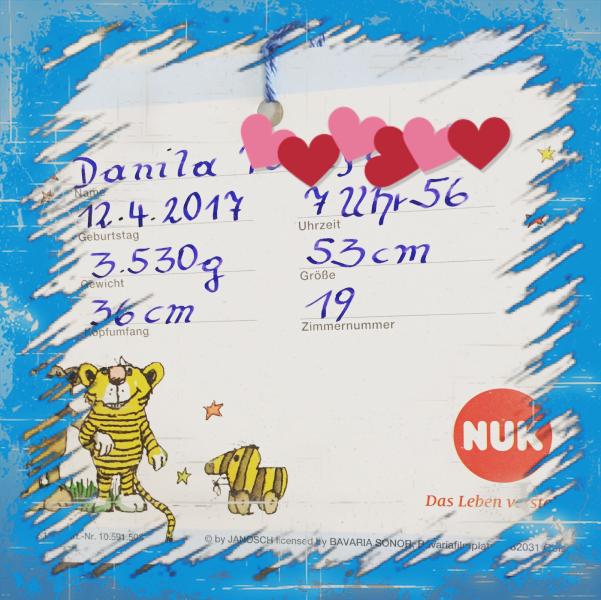 Danila
Name
12.4.2017 7 Uhr 56
Geburtstag Uhrzeit
3.530g 53 cm
Gewicht Größe
36 cm 19
Kopfumfang Zimmernummer
NUK
Das Leben
.-Nr. 10.591.50 © by JANOSCH licensed by BAVARIA SONOR, Bavariafilmplat 82031